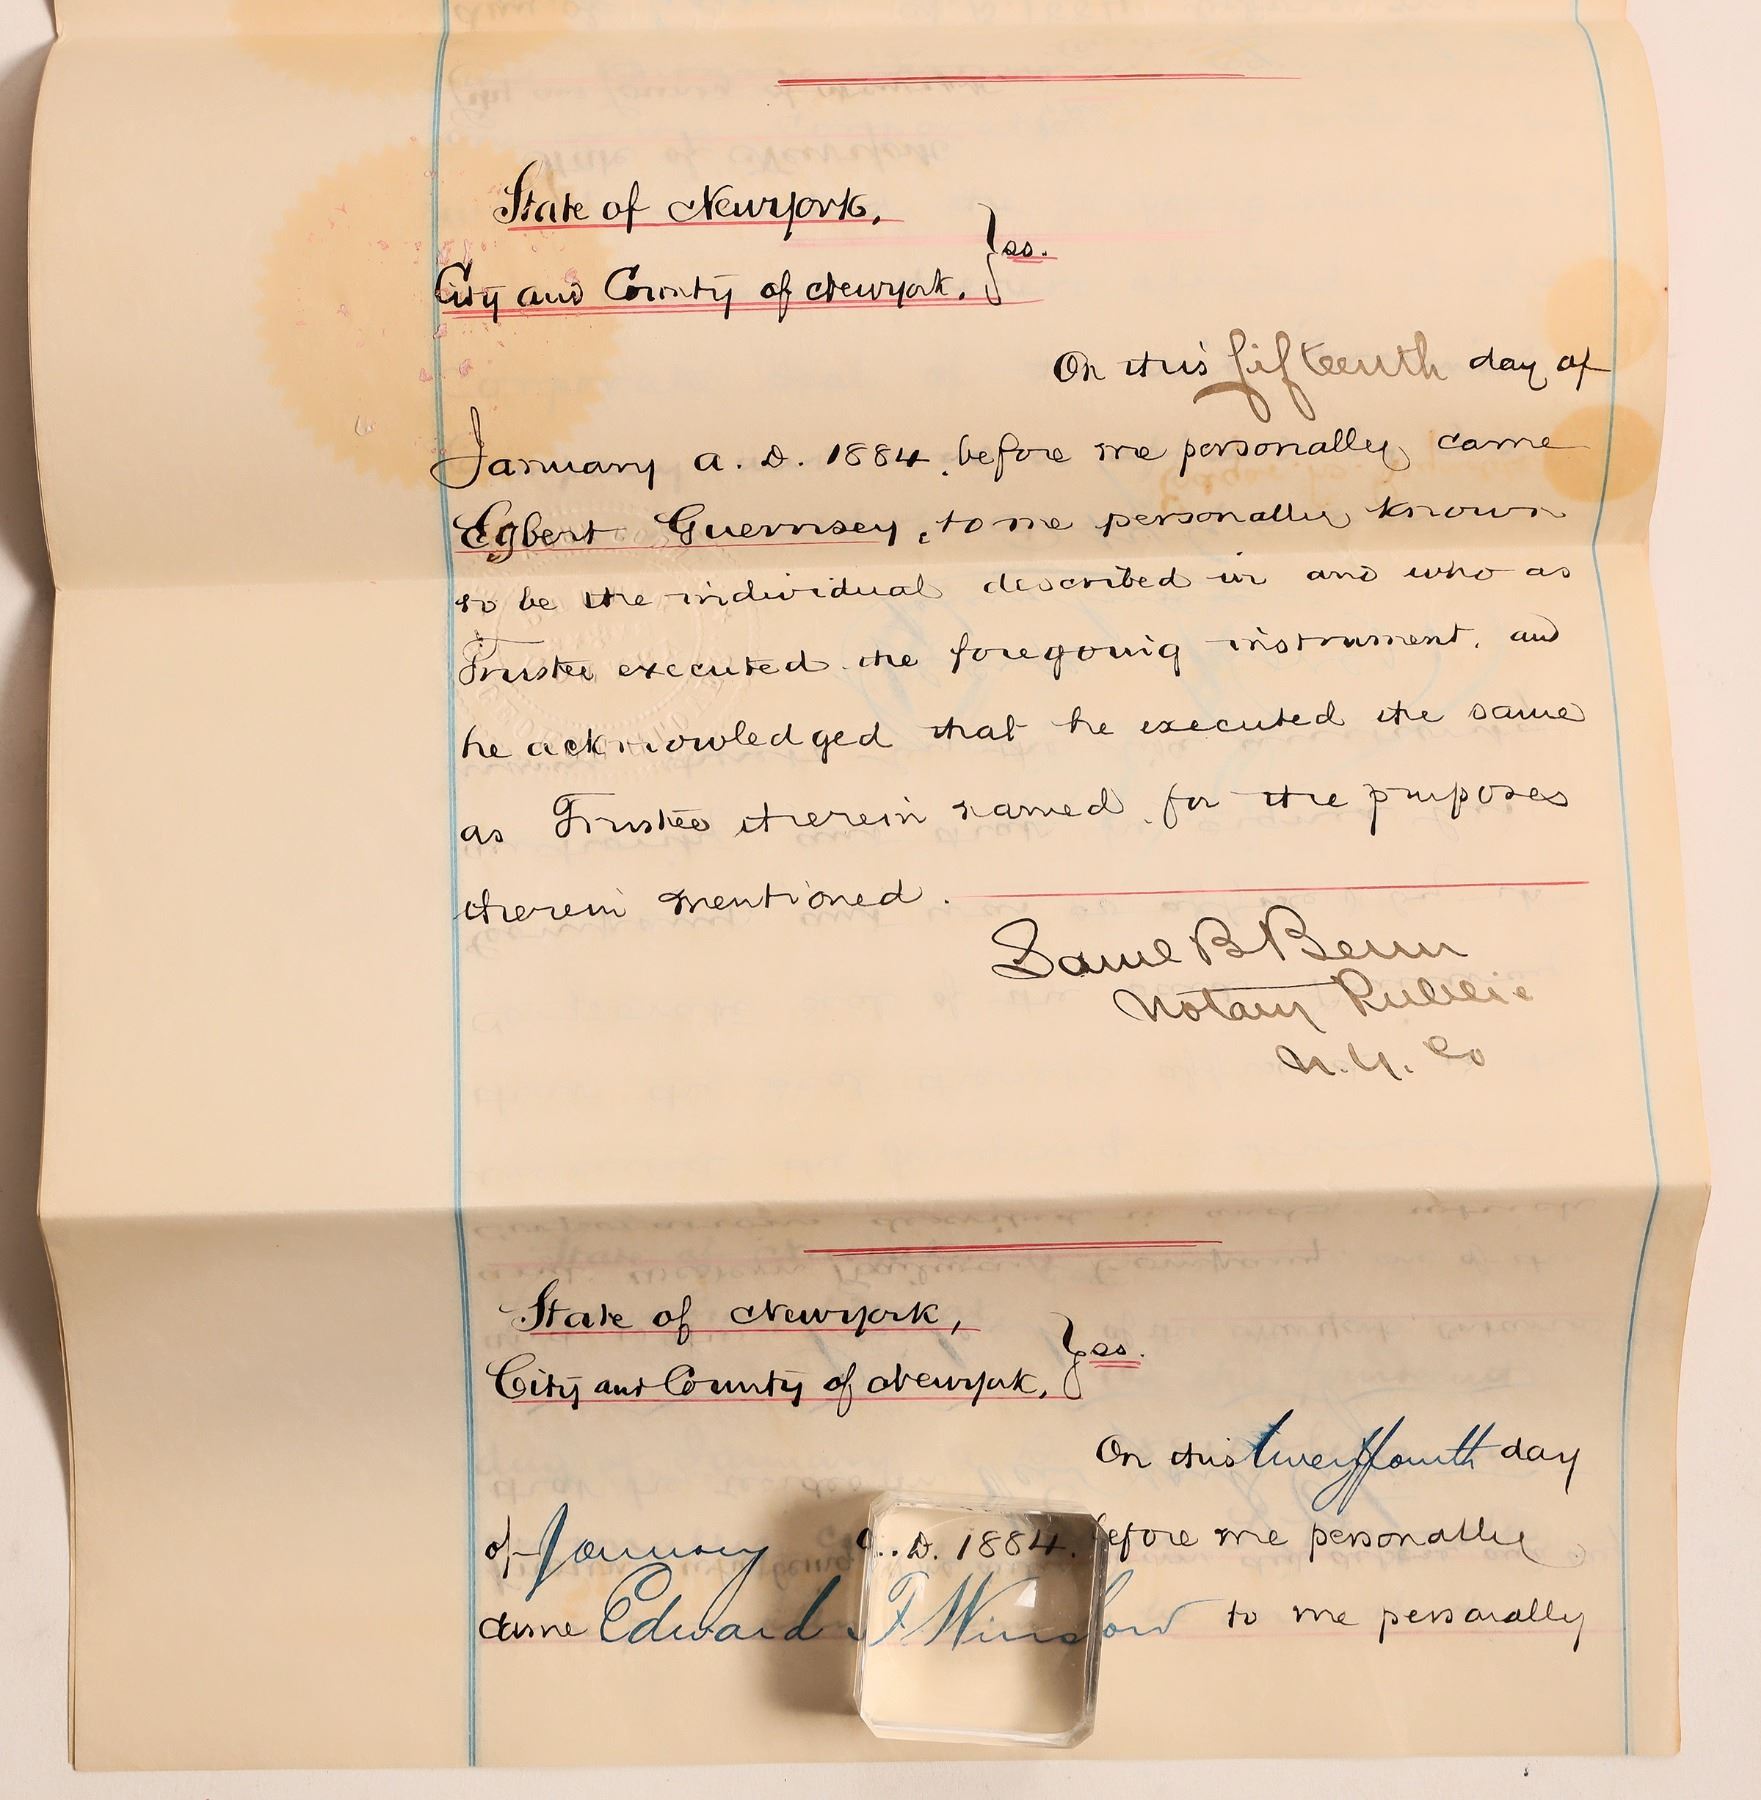 State of New York,
City and County of New York. } ss.
On this fifteenth day of
January A. D. 1884. before me personally came
Egbert Guernsey, to me personally known
to be the individual described in and who as
Trustee executed the foregoing instrument, and
he acknowledged that he executed the same
as Trustee therein named for the purposes
therein mentioned.
Saml B Benn
Notary Public
N. Y. Co
State of New York,
City and County of New York, } ss.
On this twenty fourth day
of January A. D. 1884. before me personally
came Edward F Winslow to me personally